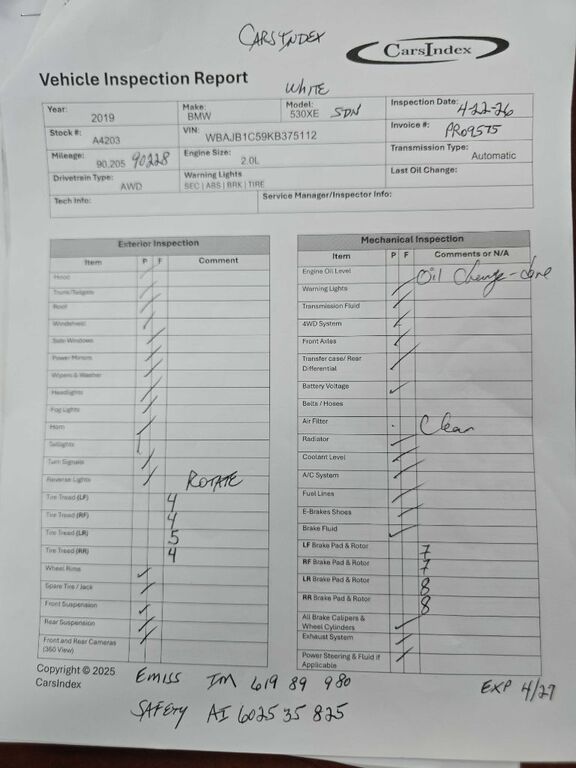 CARSINDEX
CarsIndex
Vehicle Inspection Report
WHITE
Year: 2019 Make: BMW Model: 530XE SDN Inspection Date: 4-22-26
Stock #: A4203 VIN: WBAJB1C59KB375112 Invoice #: PRO9575
Mileage: 90,205 90228 Engine Size: 2.0L Transmission Type: Automatic
Drivetrain Type: AWD Warning Lights SEC | ABS | BRK | TIRE Last Oil Change:
Tech Info: Service Manager/Inspector Info:
Exterior Inspection
Item P F Comment
Hood
Trunk/Tailgate
Roof
Windshield
Side Windows
Power Mirrors
Wipers & Washer
Headlights
Fog Lights
Horn
Taillights
Turn Signals
Reverse Lights ROTATE
Tire Tread (LF) 4
Tire Tread (RF) 4
Tire Tread (LR) 5
Tire Tread (RR) 4
Wheel Rims
Spare Tire / Jack
Front Suspension
Rear Suspension
Front and Rear Cameras
(360 View)
Mechanical Inspection
Item P F Comments or N/A
Engine Oil Level Oil Change - done
Warning Lights
Transmission Fluid
4WD System
Front Axles
Transfer case/ Rear
Differential
Battery Voltage
Belts / Hoses
Air Filter Clean
Radiator
Coolant Level
A/C System
Fuel Lines
E-Brakes Shoes
Brake Fluid
LF Brake Pad & Rotor 7
RF Brake Pad & Rotor 7
LR Brake Pad & Rotor 8
RR Brake Pad & Rotor 8
All Brake Calipers &
Wheel Cylinders
Exhaust System
Power Steering & Fluid if
Applicable
Copyright © 2025
CarsIndex
EMISS IM 619 89 980 EXP 4/27
SAFETY AI 6025 35 825